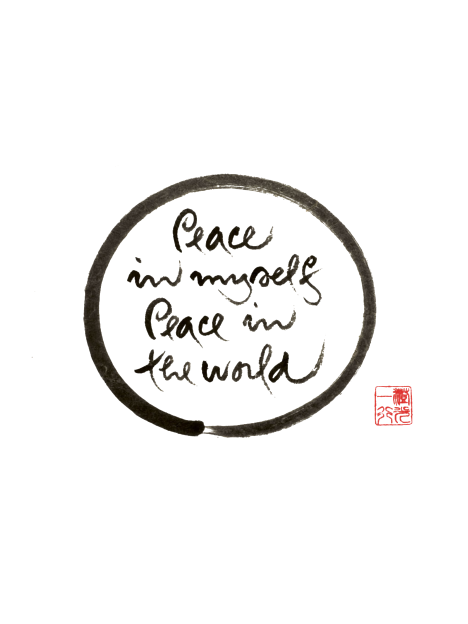 Peace
in myself
Peace in
the world
一行